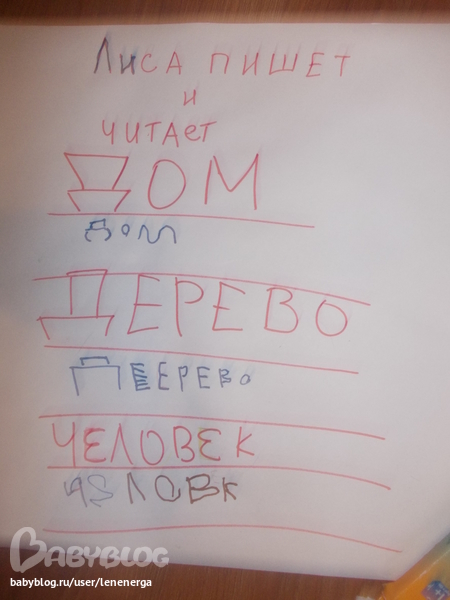 ЛИСА ПИШЕТ
и
ЧИТАЕТ
ДОМ
ДОМ
ДЕРЕВО
ДЕЕРЕВО
ЧЕЛОВЕК
BABYBLOG
babyblog.ru/user/lenenerga